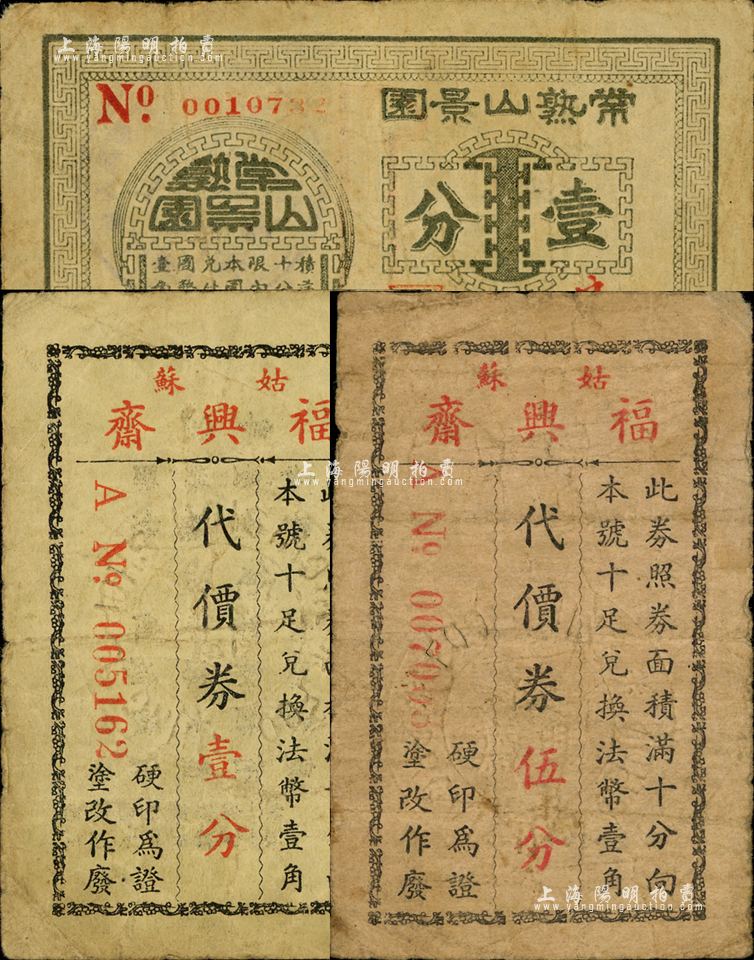 上海陽明拍賣
www.yangmingauction.com
No. 0010732
常熟山景園
壹分
常熟山景園
積十限本兌國壹
姑蘇
福興齋
本號十足兌換法幣壹角
代價券壹分
硬印爲證
塗改作廢
A No. 005162
姑蘇
福興齋
此券照券面積滿十分向
本號十足兌換法幣壹角
代價券伍分
硬印爲證
塗改作廢
A No.
上海陽明拍賣
www.yangmingauction.com
上海陽明拍賣
www.yangmingauction.com